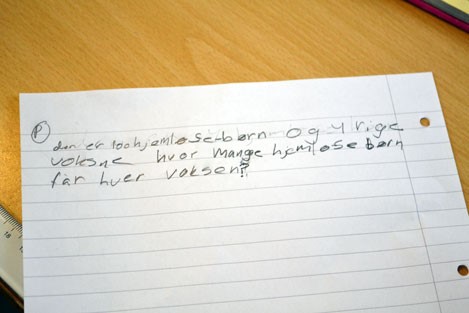 P
der er 100 hjemløse børn og 4 rige
voksne hvor mange hjemløse børn
får hver voksen?